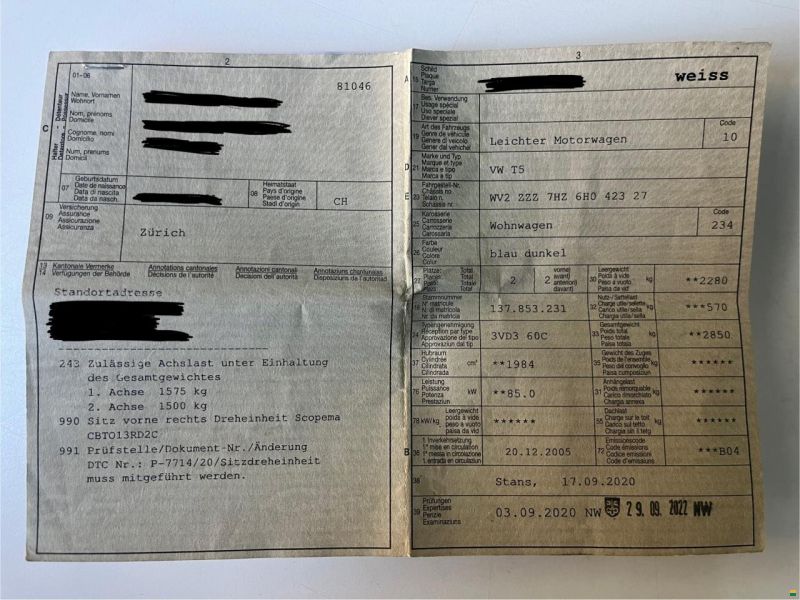 2
01-06
81046
C
Halter - Détenteur
Detentore - Possessur
Name, Vornamen
Wohnort
Nom, prénoms
Domicile
Cognome, nomi
Domicilio
Num, prenums
Domicil
07
Geburtsdatum
Date de naissance
Data di nascita
Data da nasch.
08
Heimatstaat
Pays d'origine
Paese d'origine
Stadi d'origin
CH
09
Versicherung
Assurance
Assicurazione
Assicuranza
Zürich
13
14
Kantonale Vermerke
Verfügungen der Behörde
Annotations cantonales
Décisions de l'autorité
Annotazioni cantonali
Decisioni dell'autorità
Annotaziuns chantunalas
Disposiziuns da l'autoritad
Standortadresse
243 Zulässige Achslast unter Einhaltung
des Gesamtgewichtes
1. Achse 1575 kg
2. Achse 1500 kg
990 Sitz vorne rechts Dreheinheit Scopema
CBTO13RD2C
991 Prüfstelle/Dokument-Nr./Änderung
DTC Nr.: P-7714/20/Sitzdreheinheit
muss mitgeführt werden.
3
A
15
Schild
Plaque
Targa
Numer
weiss
Bes. Verwendung
Usage spécial
Uso speciale
Diever spezial
19
Art des Fahrzeugs
Genre de véhicule
Genere di veicolo
Gener dal vehichel
Leichter Motorwagen
Code
10
D
21
Marke und Typ
Marque et type
Marca e tipo
Marca e tip
VW T5
E
23
Fahrgestell-Nr.
Châssis no
Telaio n.
Schassis nr.
WV2 ZZZ 7HZ 6H0 423 27
25
Karosserie
Carrosserie
Carrozzeria
Carossaria
Wohnwagen
Code
234
26
Farbe
Couleur
Colore
Color
blau dunkel
27
Plätze: Total
2
2
vorne)
avant)
anteriori)
davant)
30
Leergewicht
Poids à vide
Peso a vuoto
Paisa da vid
kg
**2280
18
Stammnummer
N° matricule
N. di matricola
Nr. da matricla
137.853.231
32
Nutz-/Sattellast
Charge utile/sellette
Carico utile/sella
Chargia utila/sella
kg
***570
24
Typengenehmigung
Réception par type
Approvazione del tipo
Approvaziun dal tip
3VD3 60C
33
Gesamtgewicht
Poids total
Peso totale
Paisa totala
kg
**2850
37
Hubraum
Cylindrée
Cilindrata
Cilindrada
cm³
**1984
35
Gewicht des Zuges
Poids de l'ensemble
Peso del convoglio
Paisa cumposiziun
kg
******
76
Leistung
Puissance
Potenza
Prestaziun
kW
**85.0
31
Anhängelast
Poids remorquable
Carico rimorchiato
Chargia annexa
kg
******
78
kW/kg
Leergewicht
poids à vide
peso a vuoto
paisa da vid
******
55
Dachlast
Charge sur le toit
Carico sul tetto
Chargia sin il tetg
kg
******
B
36
1. Inverkehrsetzung
1re mise en circulation
1a messa in circolazione
1. entrada en circulaziun
20.12.2005
72
Emissionscode
Code émissions
Codice emissioni
Code d'emissiuns
***B04
38
Stans, 17.09.2020
39
Prüfungen
Expertises
Perizie
Examinaziuns
03.09.2020 NW
29. 09. 2022 NW